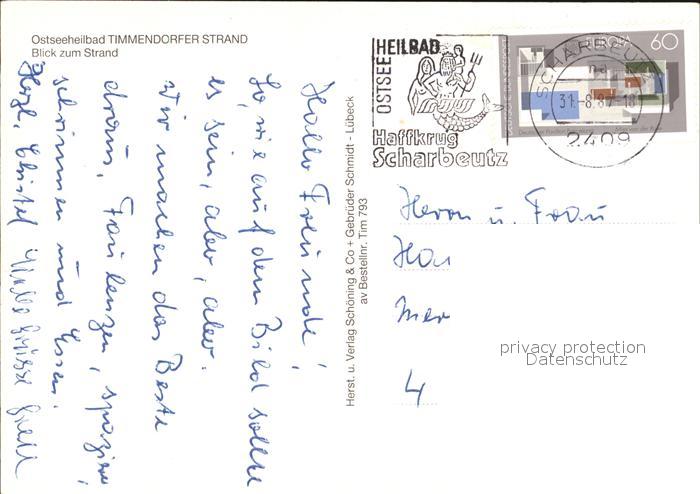 Ostseeheilbad TIMMENDORFER STRAND
Blick zum Strand
Hallo Freunde!
So, wie auf dem Bild sollte
es sein, aber, aber.
Wir machen das Beste
draus. Faulenzen, spazieren,
schwimmen und Essen.
Herzl. Christel Viele Grüsse
Herst. u. Verlag Schöning & Co + Gebrüder Schmidt - Lübeck
av Bestellnr. Tim 793
OSTSEE
HEILBAD
Haffkrug
Scharbeutz
SCHARBEUTZ
31.-8.87-18
2409
EUROPA 60
Herrn u. Frau
Han
Mer
4
privacy protection
Datenschutz